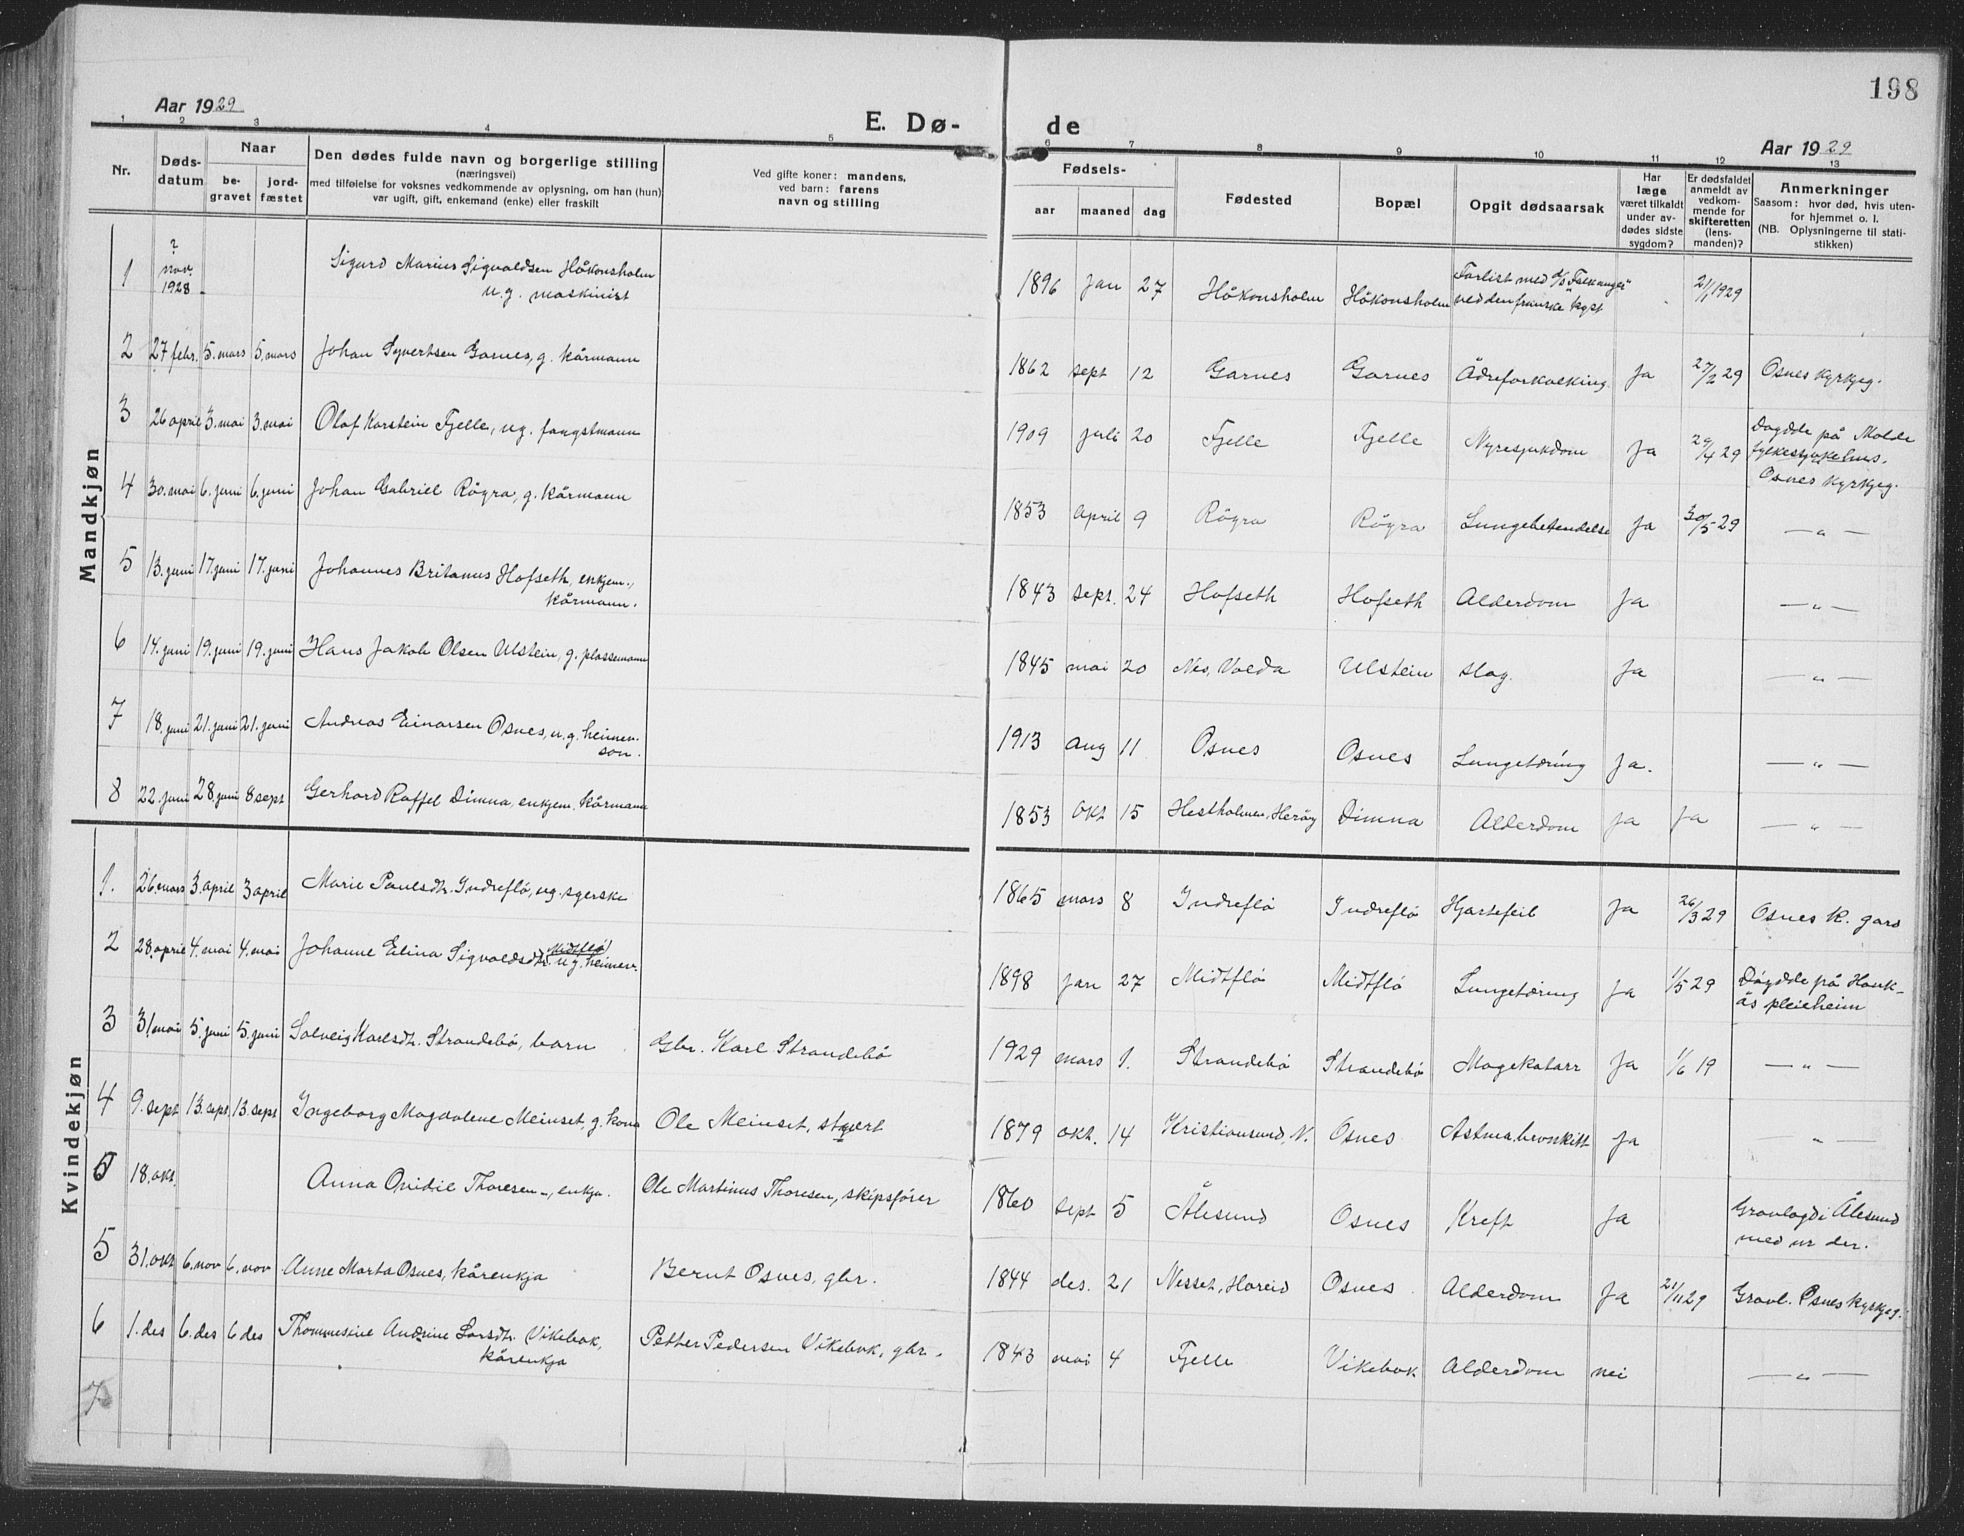 198
Aar 1929
E. Dø- de
Aar 1929
1 2 3 4 5 6 7 8 9 10 11 12 13
Nr.
Døds-
datum
Naar
be-
gravet
jord-
fæstet
Den dødes fulde navn og borgerlige stilling
(næringsvei)
med tilføielse for voksnes vedkommende av oplysning, om han (hun)
var ugift, gift, enkemand (enke) eller fraskilt
Ved gifte koner: mandens,
ved barn: farens
navn og stilling
Fødsels-
aar maaned dag
Fødested
Bopæl
Opgit dødsaarsak
Har
læge
været tilkaldt
under av-
dødes sidste
sygdom?
Er dødsfaldet
anmeldt av
vedkom-
mende for
skifteretten
(lens-
manden)?
Anmerkninger
Saasom: hvor død, hvis uten-
for hjemmet o. l.
(NB. Oplysningerne til stati-
stikken)
Mandkjøn
1 ? nov. 1928 Sigurd Marius Sigvaldsen Håkonsholm
u.g. maskinist
1896 jan 27 Håkonsholm Håkonsholm Forlist med d/s "Falkanger"
ved den franske kyst 21/1 1929
2 27 febr. 5. mars 5. mars Johan Syvertsen Garnes, g. kårmann 1862 sept 12 Garnes Garnes Ådreforkalking Ja 27/2 29 Osnes kyrkjeg.
3 26 april 3. mai 3. mai Olaf Karstein Fjelle, ug. fangstmann 1909 juli 20 Fjelle Fjelle Nyresjukdom Ja 29/4 29 Døydde på Molde
fylkessjukehus.
Osnes kyrkjeg.
4 30. mai 6. juni 6. juni Johan Gabriel Røyra, g. kårmann 1853 april 9 Røyra Røyra Lungebetendelse Ja 30/5 29 — " —
5 13. juni 17. juni 17. juni Johannes Britanus Hofseth, enkjem.,
kårmann.
1843 sept. 24 Hofseth Hofseth Alderdom Ja — " —
6 14. juni 19. juni 19. juni Hans Jakob Olsen Ulstein, g. plassemann 1845 mai 20 Nes, Volda Ulstein slag. Ja — " —
7 18. juni 21. juni 21. juni Andreas Einarsen Osnes, u.g. heimev.
son.
1913 aug 11 Osnes Osnes Lungetæring Ja. — " —
8 22. juni 28. juni 8 sept Gerhard Raffel Dimna, enkjem. kårmann 1853 okt 15 Hestholmen, Herøy Dimna Alderdom Ja Ja — " —
Kvindekjøn
1. 26. mars 3. april 3 april Marie Paulsdtr. Indreflø, ug. syerske 1865 mars 8 Indreflø Indreflø Hjartefeil Ja 26/3 29 Osnes k. gard
2 28. april 4. mai 4. mai Johanne Elina Sigvaldsdtr. Midtflø
u.g. heimev.
1898 jan 27 Midtflø Midtflø Lungetæring Ja 1/5 29 Døydde på Hauk-
ås pleieheim
3 31. mai 5. juni 5. juni Solveig Karlsdtr. Strandebø, barn Gbr. Karl Strandebø 1929 mars 1. Strandebø Strandebø Magekatarr Ja 1/6 19 — " —
4 9. sept 13. sept. 13. sept Ingeborg Magdalene Meinset, g. kona Ole Meinset, stuert 1879 okt. 14 Kristiansund, N. Osnes Astma, bronkitt Ja — " —
18. okt. Anna Ovidie Thoresen, enkja. Ole Martinus Thoresen, skipsfører 1860 sept 5 Ålesund Osnes Kreft Ja Gravlagd i Ålesund
med nr der.
5 31. okt 6. nov 6. nov Anne Marta Osnes, kårenkja Bernt Osnes, gbr. 1844 des. 21 Nesset, Hareid Osnes Alderdom Ja 21/11 29 Gravl. Osnes kyrkjeg.
6 1. des 6. des 6 des Thommesine Andrine Larsdtr. Vikebak,
kårenkja
Petter Pedersen Vikebak, gbr. 1843 mai 4 Fjelle Vikebak Alderdom nei — " —
7